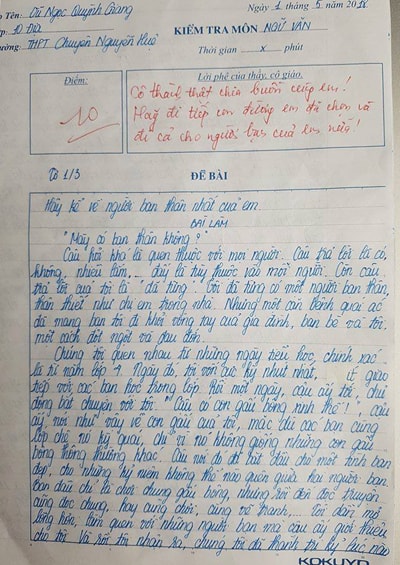 Tên: Cù Ngọc Quỳnh Giang
Ngày 1 tháng 5 năm
10 Địa
KIỂM TRA MÔN NGỮ VĂN
Trường: THPT Chuyên Nguyễn Huệ
Thời gian x phút
Điểm:
Lời phê của thầy, cô giáo
10
Cô thành thật chia buồn cùng em!
Hãy đi tiếp con đường em đã chọn và
đi cả cho người bạn của em nữa!
ĐỀ BÀI
Hãy kể về người bạn thân nhất của em
BÀI LÀM
"Mày có bạn thân không?"
Câu hỏi khá là quen thuộc với mọi người. Câu trả lời là có,
không, nhiều lắm,... đấy là tùy thuộc vào mỗi người. Còn câu
trả lời của tôi là "đã từng". Tôi đã từng có một người bạn thân,
thân thiết như chị em trong nhà. Nhưng một căn bệnh quái ác
đã mang bạn tôi đi khỏi vòng tay của gia đình, bạn bè và tôi
một cách đột ngột và đau đớn.
Chúng tôi quen nhau từ những ngày tiểu học, chính xác
là từ năm lớp 4. Ngày đó, tôi vốn cực kỳ nhút nhát, ít giao
tiếp với các bạn học trong lớp. Rồi một ngày, cậu ấy tới, chủ
động bắt chuyện với tôi. "Cậu có con gấu bông xinh thế!", cậu
ấy nói như vậy về con gấu của tôi, mặc dù các bạn cùng
lớp chê nó kỳ quái, chỉ vì nó không giống những con gấu
bông thông thường khác. Câu nói đó đã bắt đầu cho một tình bạn
đẹp, cho những kỷ niệm không thể nào quên giữa hai người bạn.
Ban đầu chỉ là chơi chung gấu bông, nhưng rồi đổi đọc truyện
cũng đọc chung, hay cùng chơi, cùng vẽ tranh,... Tôi dần mở
lòng hơn, làm quen với những người bạn mà cậu ấy giới thiệu
cho tôi. Và rồi tôi nhận ra, chúng tôi đã thành tri kỷ lúc nào
KOKUYO